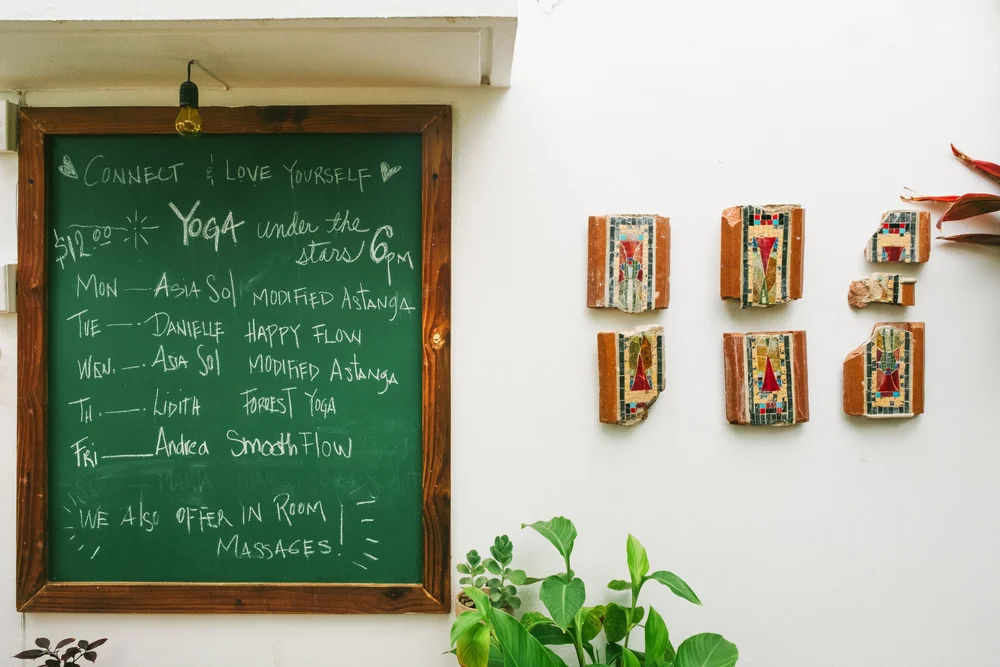 CONNECT & LOVE YOURSELF
$12.00 YOGA under the
stars 6pm
MON — ASIA SOl MODIFIED ASTANGA
TUE — DANIELLE HAPPY FLOW
WEN. — ASIA SOl MODIFIED ASTANGA
TH. — LIDITH FORREST YOGA
FRi — Andrea Smooth Flow
WE AlSo OFFER IN ROOM
MASSAGES!